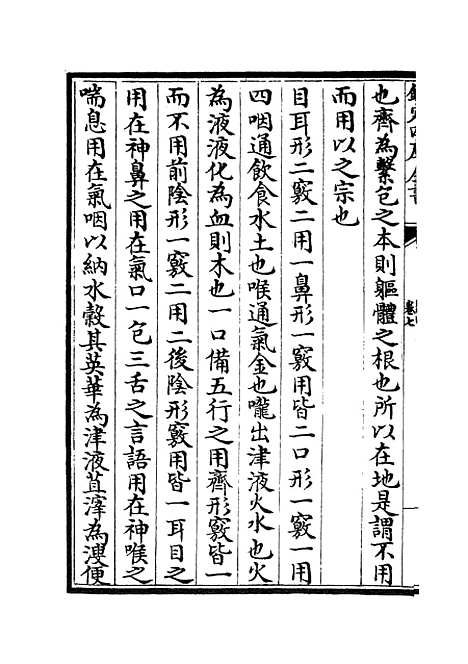 也齊為繫包之本則軀體之根也所以在地是謂不用
而用以之宗也
目耳形二竅二用一鼻形一竅用皆二口形一竅一用
四咽通飲食水土也喉通氣金也嚨出津液火水也火
為液液化為血則木也一口備五行之用齊形竅皆一
而不用前陰形一竅二用二後陰形竅用皆一耳目之
用在神鼻之用在氣口一包三舌之言語用在神喉之
喘息用在氣咽以納水穀其英華為津液苴滓為溲便